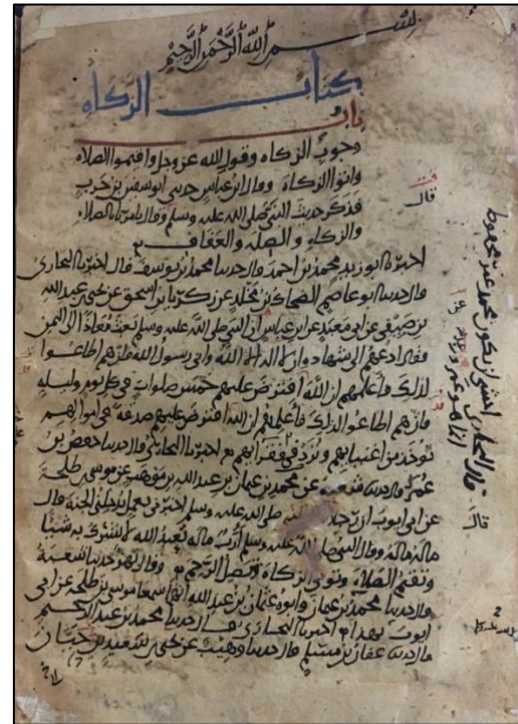 بسم الله الرحمن الرحيم
كتاب الزكاه
باب
وجوب الزكاه وقول الله عز وجل واقيموا الصلاه
واتوا الزكاة وقال ابن عباس حدثني ابو سفين بن حرب
فذكر حديث النبي صلى الله عليه وسلم وقال يامرنا بالصلاه
والزكاه والصله والعفاف
اخبرنا ابو زيد محمد بن احمد قال حدثنا محمد بن يوسف قال اخبرنا البخاري
قال حدثنا ابو عاصم الضحاك بن مخلد عن زكريا بن اسحق عن يحيى بن عبد الله
بن صيفي عن ابي معبد عن ابن عباس ان النبي صلى الله عليه وسلم بعث معاذا الى اليمن
فقال ادعهم الى شهادة ان لا اله الا الله واني رسول الله فان هم اطاعوا
لذلك فاعلمهم ان الله افترض عليهم خمس صلوات في كل يوم وليله
فان هم اطاعوا لذلك فاعلمهم ان الله افترض عليهم صدقة في اموالهم
توخذ من اغنيايهم وترد في فقرايهم اخبرنا البخاري قال حدثنا حفص بن
عمر قال حدثنا شعبة عن محمد بن عثمان بن عبد الله بن موهب عن موسى بن طلحة
عن ابي ايوب ان رجلا قال للنبي صلى الله عليه وسلم اخبرني بعمل يدخلني الجنة قال
ماله ماله وقال النبي صلى الله عليه وسلم أرب ماله تعبد الله لا تشرك به شيئا
وتقيم الصلاة وتوتي الزكاة وتصل الرحم وقال بهز حدثنا شعبة
قال حدثنا محمد بن عثمان وابوه عثمان بن عبد الله انهما سمعا موسى بن طلحة عن ابي
ايوب بهذا اخبرنا البخاري قال حدثنا محمد بن عبد الرحيم
قال حدثنا عفان بن مسلم قال حدثنا وهيب عن يحيى بن سعيد بن حيان
قال
قال البخاري اخشى ان يكون محمد غير محفوظ
انما هو عمرو
قال